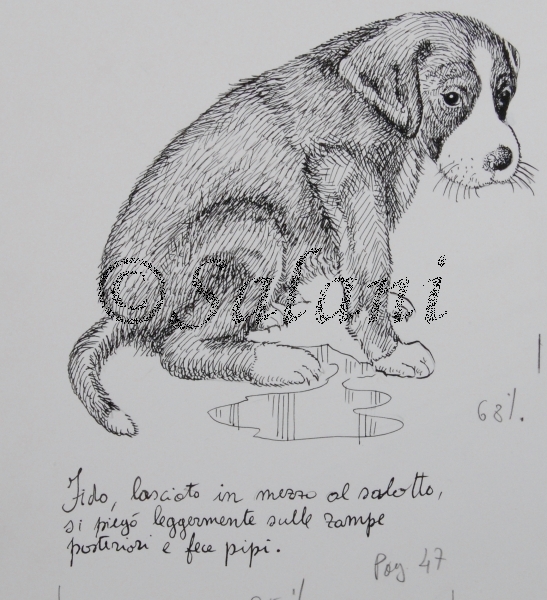 ©Salani
68%.
Fido, lasciato in mezzo al salotto,
si piegó leggermente sulle zampe
posteriori e fece pipì.
Pag 47